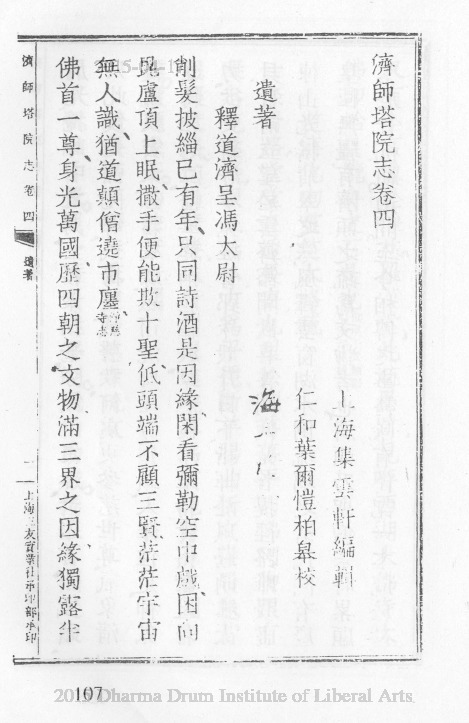 濟師塔院志卷四
上海集雲軒編輯
仁和葉爾愷柏皋校
遺著
釋道濟呈馮太尉
削髮披緇已有年只同詩酒是因緣閑看彌勒空中戲困向
毘盧頂上眠撒手便能欺十聖低頭端不顧三賢茫茫宇宙
無人識猶道顛僧遶市廛淨慈寺志
佛首一尊身光萬國歷四朝之文物滿三界之因緣獨露半
濟師塔院志卷四
遺著
一
107
2015 Dharma Drum Institute of Liberal Arts